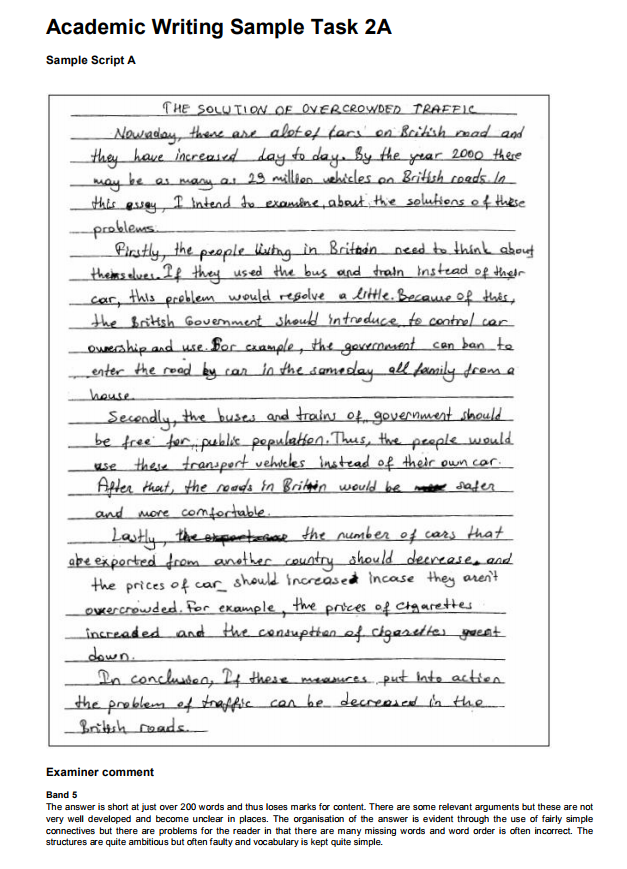 Academic Writing Sample Task 2A
Sample Script A
THE SOLUTION OF OVERCROWDED TRAFFIC
Nowaday, there are alot of cars on British road and
they have increased day to day. By the year 2000 there
may be as many as 29 million vehicles on British roads. In
this essay, I intend to examine, about the solutions of these
problems.
Firstly, the people living in Britain need to think about
themselves. If they used the bus and train instead of their
car, this problem would resolve a little. Because of this,
the British Government should introduce to control car
owership and use. For example, the government can ban to
enter the road by car in the sameday all family from a
house.
Secondly, the buses and trains of government should
be free for public population. Thus, the people would
use these transport vehicles instead of their own car.
After that, the roads in Britain would be safer
and more comfortable.
Lastly, the number of cars that
are exported from another country should decrease, and
the prices of car should increased incase they aren't
overcrowded. For example, the prices of cigarettes
increaded and the consuption of cigarettes went
down.
In conclusion, If these measures put into action
the problem of traffic can be decreased in the
British roads.
Examiner comment
Band 5
The answer is short at just over 200 words and thus loses marks for content. There are some relevant arguments but these are not
very well developed and become unclear in places. The organisation of the answer is evident through the use of fairly simple
connectives but there are problems for the reader in that there are many missing words and word order is often incorrect. The
structures are quite ambitious but often faulty and vocabulary is kept quite simple.